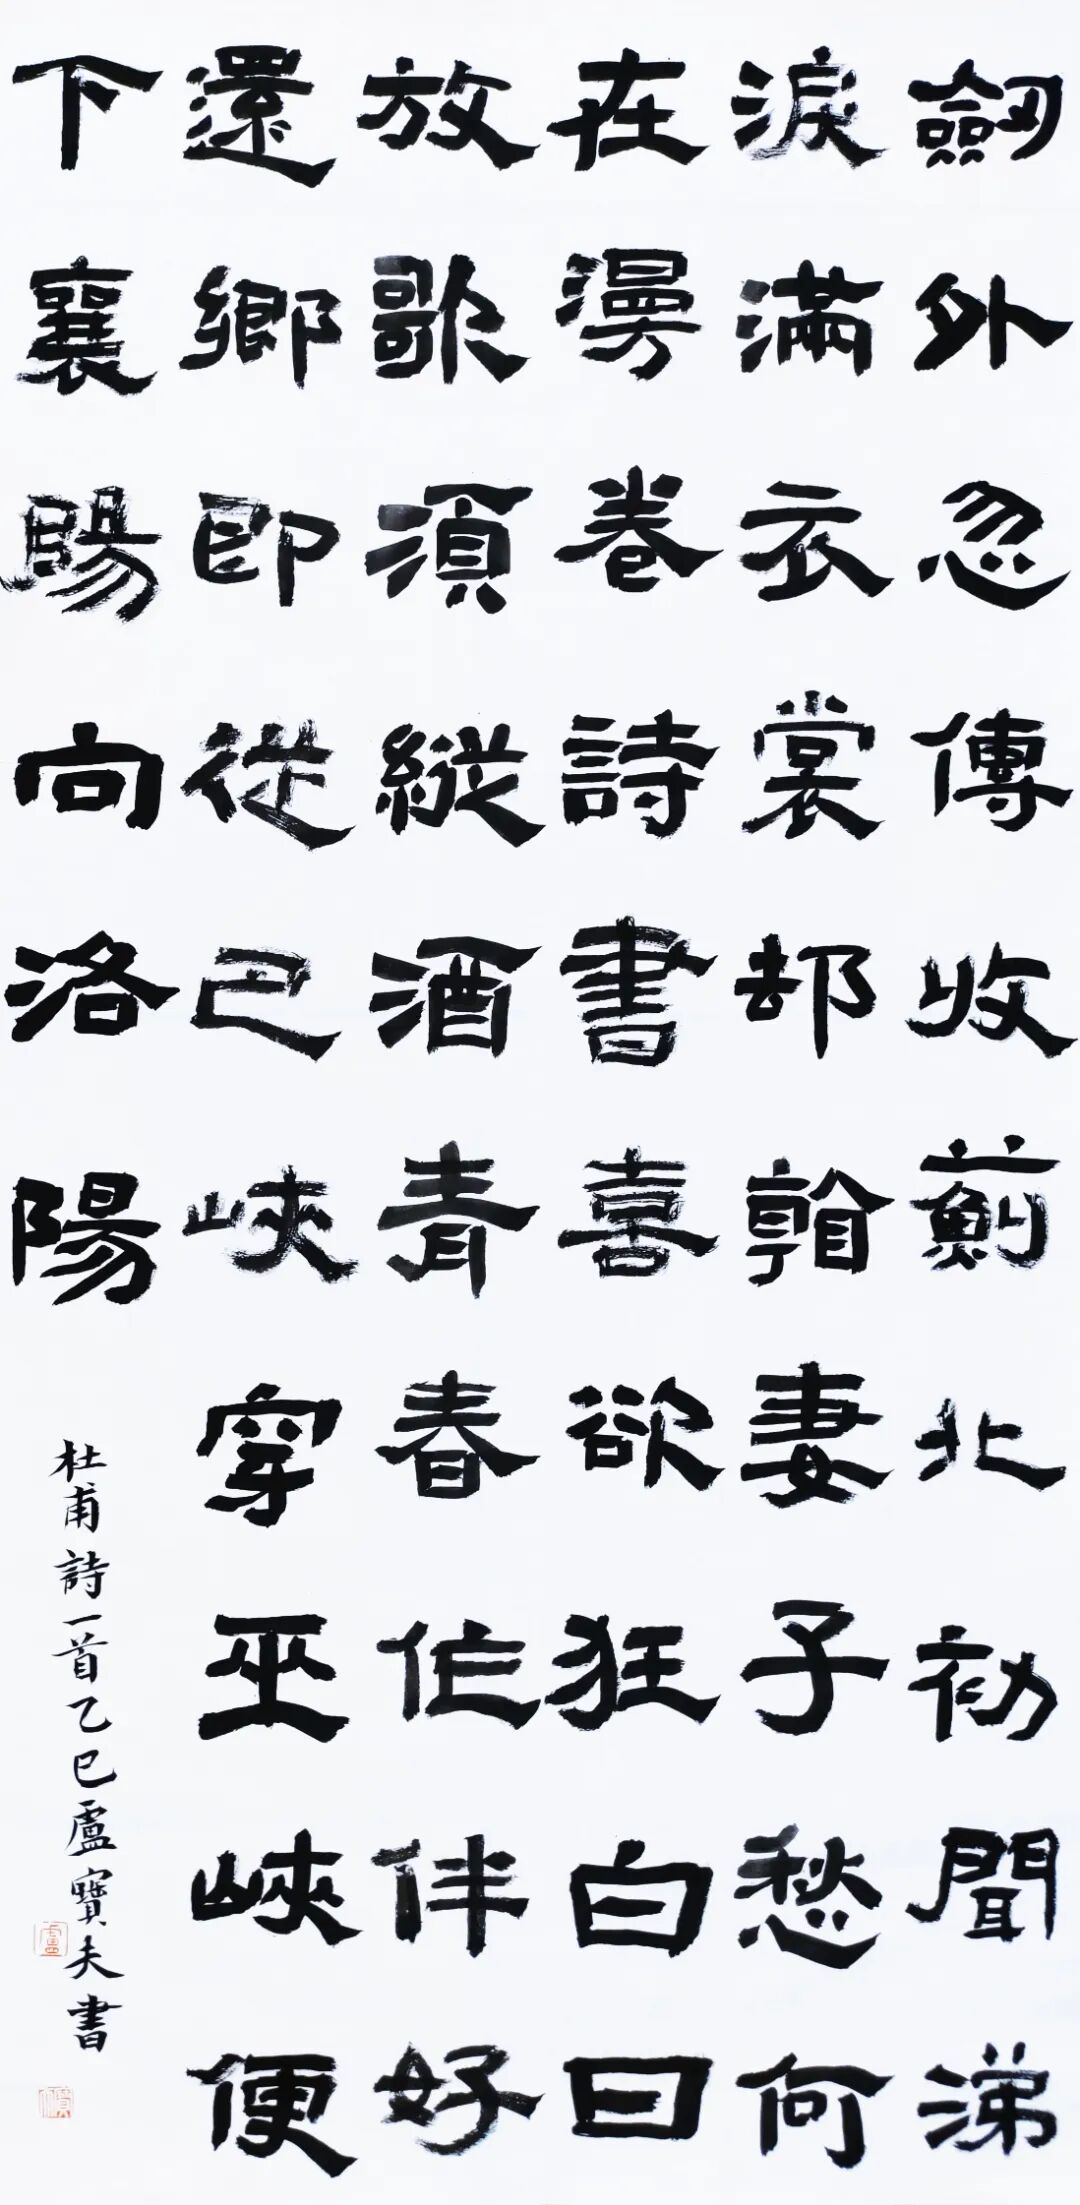 劒外忽傳收薊北初聞涕
淚滿衣裳却看妻子愁何
在漫卷詩書喜欲狂白日
放歌須縱酒青春作伴好
還鄉即從巴峽穿巫峽便
下襄陽向洛陽
杜甫詩一首乙巳盧寶夫書
盧